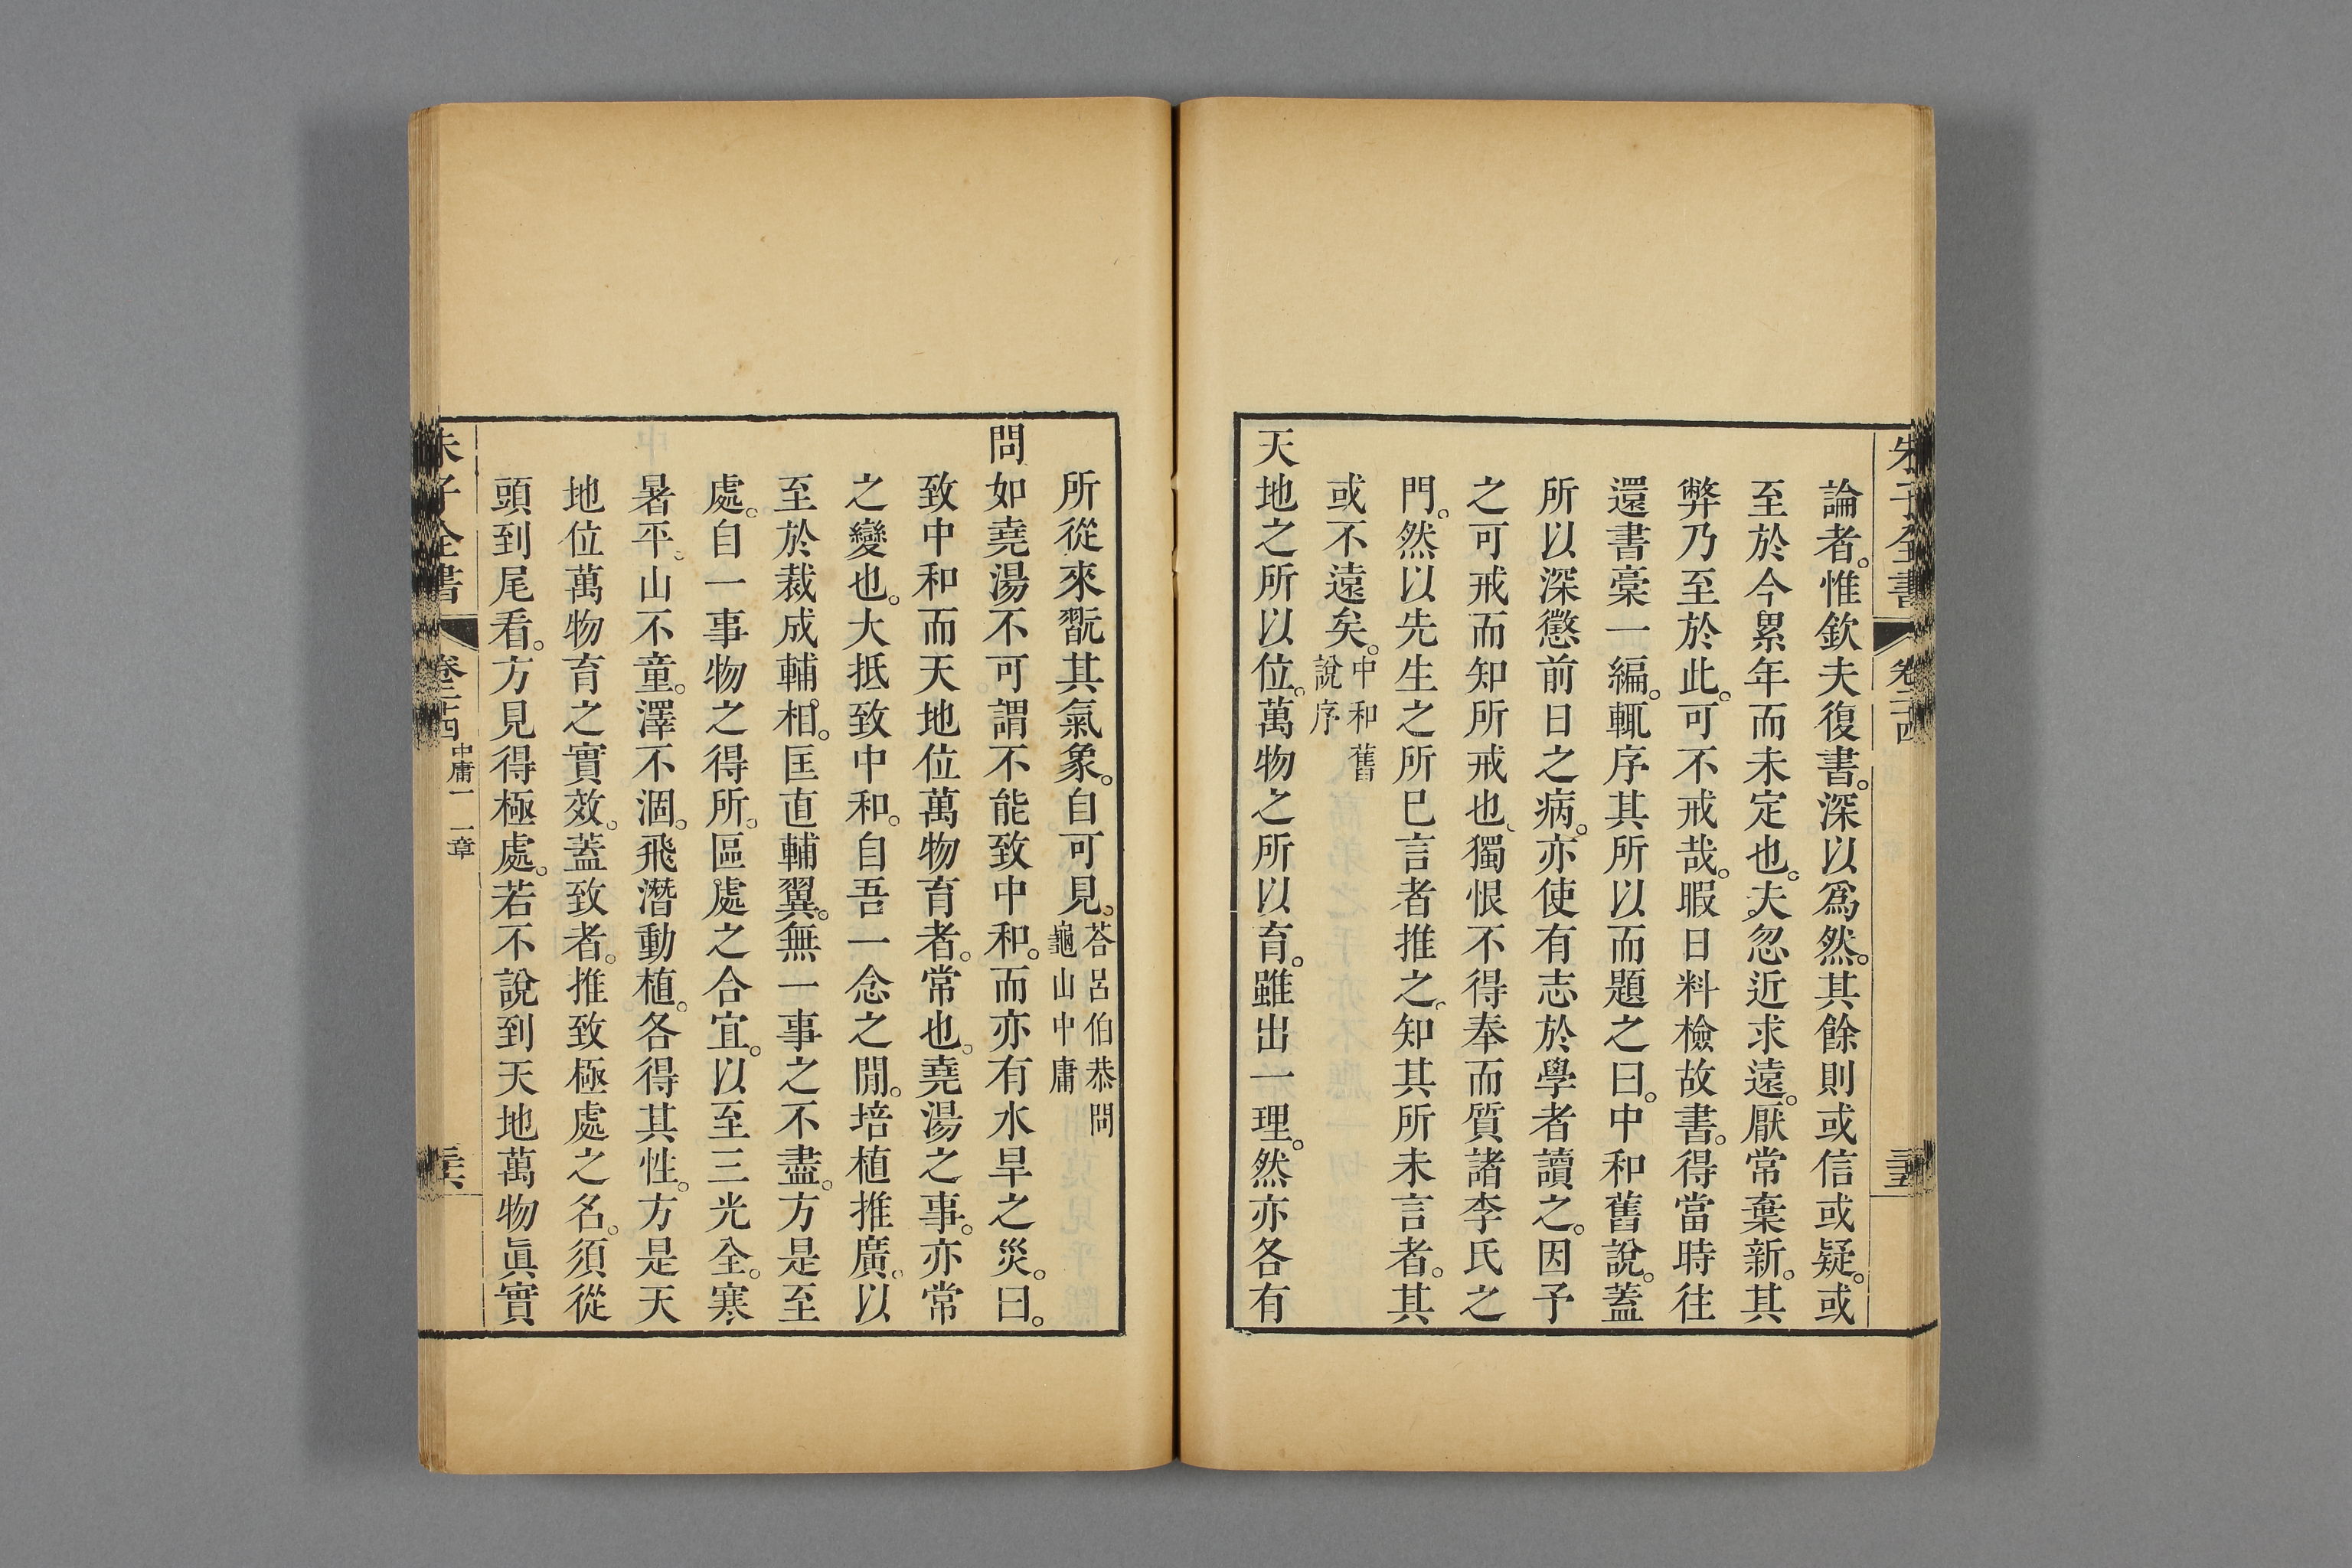 朱子全書 卷二十四 三十五
論者。惟欽夫復書。深以爲然。其餘則或信或疑。或
至於今累年而未定也。夫忽近求遠。厭常棄新。其
弊乃至於此。可不戒哉。暇日料檢故書。得當時往
還書槀一編。輒序其所以而題之曰。中和舊說。蓋
所以深懲前日之病。亦使有志於學者讀之。因予
之可戒而知所戒也、獨恨不得奉而質諸李氏之
門。然以先生之所已言者推之。知其所未言者。其
或不遠矣。中和舊說序
天地之所以位。萬物之所以育。雖出一理。然亦各有
所從來翫其氣象。自可見。荅呂伯恭問龜山中庸
問如堯湯不可謂不能致中和。而亦有水旱之災。曰。
致中和而天地位萬物育者。常也。堯湯之事。亦常
之變也。大抵致中和。自吾一念之閒。培植推廣。以
至於裁成輔相。匡直輔翼。無一事之不盡。方是至
處。自一事物之得所。區處之合宜。以至三光全。寒
暑平。山不童。澤不涸。飛潛動植。各得其性。方是天
地位萬物育之實效。蓋致者。推致極處之名。須從
頭到尾看。方見得極處。若不說到天地萬物眞實
朱子全書 卷二十四 中庸一 一章 三十六